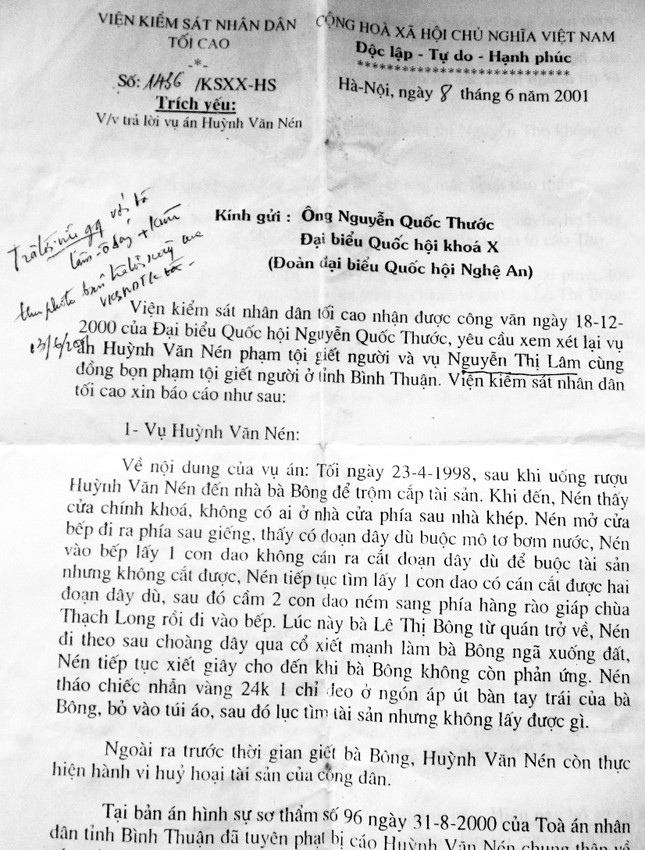 VIỆN KIỂM SÁT NHÂN DÂN
TỐI CAO
-*-
Số: 1456 /KSXX-HS
Trích yếu:
V/v trả lời vụ án Huỳnh Văn Nén
CỘNG HOÀ XÃ HỘI CHỦ NGHĨA VIỆT NAM
Độc lập - Tự do - Hạnh phúc
****************************
Hà-Nội, ngày 8 tháng 6 năm 2001
Kính gửi : Ông Nguyễn Quốc Thước
Đại biểu Quốc hội khoá X
(Đoàn đại biểu Quốc hội Nghệ An)
Viện kiểm sát nhân dân tối cao nhận được công văn ngày 18-12-
2000 của Đại biểu Quốc hội Nguyễn Quốc Thước, yêu cầu xem xét lại vụ
án Huỳnh Văn Nén phạm tội giết người và vụ Nguyễn Thị Lâm cùng
đồng bọn phạm tội giết người ở tỉnh Bình Thuận. Viện kiểm sát nhân dân
tối cao xin báo cáo như sau:
1- Vụ Huỳnh Văn Nén:
Về nội dung của vụ án: Tối ngày 23-4-1998, sau khi uống rượu
Huỳnh Văn Nén đến nhà bà Bông để trộm cắp tài sản. Khi đến, Nén thấy
cửa chính khoá, không có ai ở nhà cửa phía sau nhà khép. Nén mở cửa
bếp đi ra phía sau giếng, thấy có đoạn dây dù buộc mô tơ bơm nước, Nén
vào bếp lấy 1 con dao không cán ra cắt đoạn dây dù để buộc tài sản
nhưng không cắt được, Nén tiếp tục tìm lấy 1 con dao có cán cắt được hai
đoạn dây dù, sau đó cầm 2 con dao ném sang phía hàng rào giáp chùa
Thạch Long rồi đi vào bếp. Lúc này bà Lê Thị Bông từ quán trở về, Nén
đi theo sau choàng dây qua cổ xiết mạnh làm bà Bông ngã xuống đất,
Nén tiếp tục xiết giây cho đến khi bà Bông không còn phản ứng. Nén
tháo chiếc nhẫn vàng 24k 1 chỉ đeo ở ngón áp út bàn tay trái của bà
Bông, bỏ vào túi áo, sau đó lục tìm tài sản nhưng không lấy được gì.
Ngoài ra trước thời gian giết bà Bông, Huỳnh Văn Nén còn thực
hiện hành vi huỷ hoại tài sản của công dân.
Tại bản án hình sự sơ thẩm số 96 ngày 31-8-2000 của Toà án nhân
dân tỉnh Bình Thuận đã tuyên phạt bị cáo Huỳnh Văn Nén chung thân về